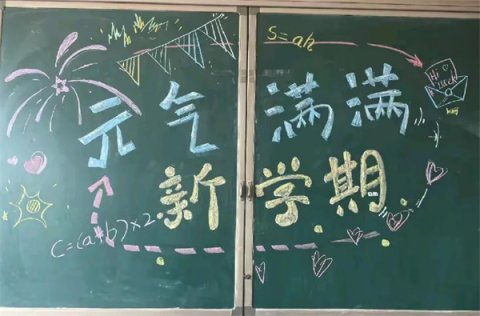 S=ah
Hi
元气满满
新学期
C=(a+b)×2